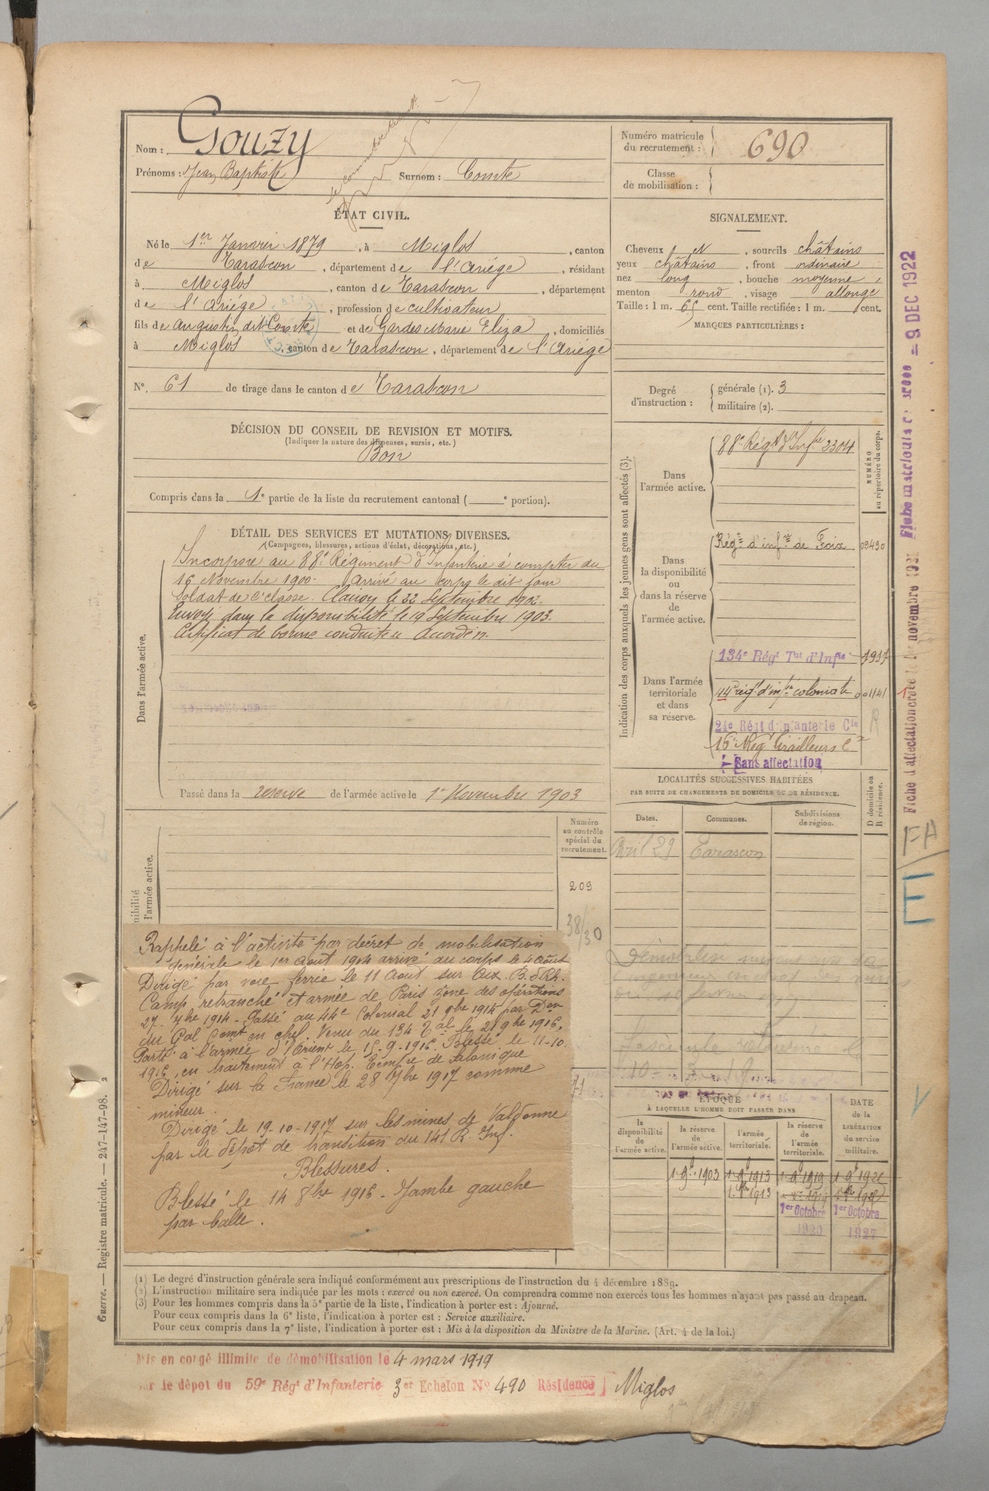 Nom : Gouzy
Prénoms : Jean Baptiste Surnom : Comte
Numéro matricule du recrutement : 690
Classe de mobilisation :
ÉTAT CIVIL.
Né le 1er Janvier 1879, à Miglos, canton
de Tarascon, département de l'Ariège, résidant
à Miglos, canton de Tarascon, département
de l'Ariège, profession de cultivateur
fils de Augustin dit Comte et de Gardes Marie Eliza, domiciliés
à Miglos canton de Tarascon, département de l'Ariège
N°. 61 de tirage dans le canton de Tarascon
SIGNALEMENT.
Cheveux N, sourcils châtains
yeux châtains, front ordinaire
nez long, bouche moyenne,
menton rond, visage allongé
Taille : 1 m. 65 cent. Taille rectifiée : 1 m. cent.
MARQUES PARTICULIÈRES :
Degré d'instruction : générale (1). 3
militaire (2).
DÉCISION DU CONSEIL DE REVISION ET MOTIFS.
(Indiquer la nature des dispenses, sursis, etc.)
Bon
Compris dans la 1e partie de la liste du recrutement cantonal ( e portion).
DÉTAIL DES SERVICES ET MUTATIONS DIVERSES.
(Campagnes, blessures, actions d'éclat, décorations, etc.)
Dans l'armée active.
Incorporé au 88e Régiment d'Infanterie à compter du
16 Novembre 1900. Arrivé au corps le dit jour
Soldat de 2e classe. Clairon le 22 Septembre 1902.
Envoyé dans la disponibilité le 19 Septembre 1903.
Certificat de bonne conduite accordé.
Passé dans la réserve de l'armée active le 1er Novembre 1903
Indication des corps auxquels les jeunes gens sont affectés (3).
NUMÉRO au répertoire du corps.
Dans l'armée active.
88e Régt d'Infie 3304
Dans la disponibilité ou dans la réserve de l'armée active.
Régt d'infie de Foix 08430
Dans l'armée territoriale et dans sa réserve.
134e Régt Tal d'Infie
44e régt d'infie coloniale 001141
21e Régt d'infanterie Cle
16e Régt Tirailleurs
Sans affectation
LOCALITÉS SUCCESSIVES HABITÉES
PAR SUITE DE CHANGEMENTS DE DOMICILE OU DE RÉSIDENCE.
Dates. Communes. Subdivisions de région. D domicile ou R résidence.
Avril 29 Tarascon
Numéro au contrôle spécial du recrutement.
209
38/30
Rappelé à l'activité par décret de mobilisation
générale le 1er Août 1914 arrivé au corps le 4 Août
Dirigé par voie ferrée le 11 Août sur Aix. B. d Rh.
Camp retranché et armée de Paris zone des opérations
27 7bre 1914. Passé au 44e Colonial 21 9bre 1914 par Don
du Gal Comt en chef. Venu du 134 Tal le 21 9bre 1915.
Parti à l'armée d'Orient le 15-9-1916. Blessé le 11-10
1916, en traitement à l'Hop. Tempre de Salonique
Dirigé sur la France le 28 7bre 1917 comme
mineur.
Dirigé le 19.10-1917 sur les mines de Valdonne
par le dépôt de transition du 141 R. Inf.
Blessures.
Blessé le 14 8bre 1916 - Jambe gauche
par balle.
ÉPOQUE
À LAQUELLE L'HOMME DOIT PASSER DANS
la disponibilité de l'armée active.
la réserve de l'armée active.
l'armée territoriale.
la réserve de l'armée territoriale.
DATE de la LIBÉRATION du service militaire.
1er Octobre 1920
1er Octobre 1927
(1) Le degré d'instruction générale sera indiqué conformément aux prescriptions de l'instruction du 4 décembre 1889.
(2) L'instruction militaire sera indiquée par les mots : exercé ou non exercé. On comprendra comme non exercés tous les hommes n'ayant pas passé au drapeau.
(3) Pour les hommes compris dans la 5e partie de la liste, l'indication à porter est : Ajourné.
Pour ceux compris dans la 6e liste, l'indication à porter est : Service auxiliaire.
Pour ceux compris dans la 7e liste, l'indication à porter est : Mis à la disposition du Ministre de la Marine. (Art. 4 de la loi.)
Mis en congé illimité de démobilisation le 4 mars 1919
sur le dépôt du 59e Régt d'Infanterie 3er Echelon N° 490 Résidence Miglos
Guerre. — Registre matricule. — 247-147-98.
9 DEC 1922
FA